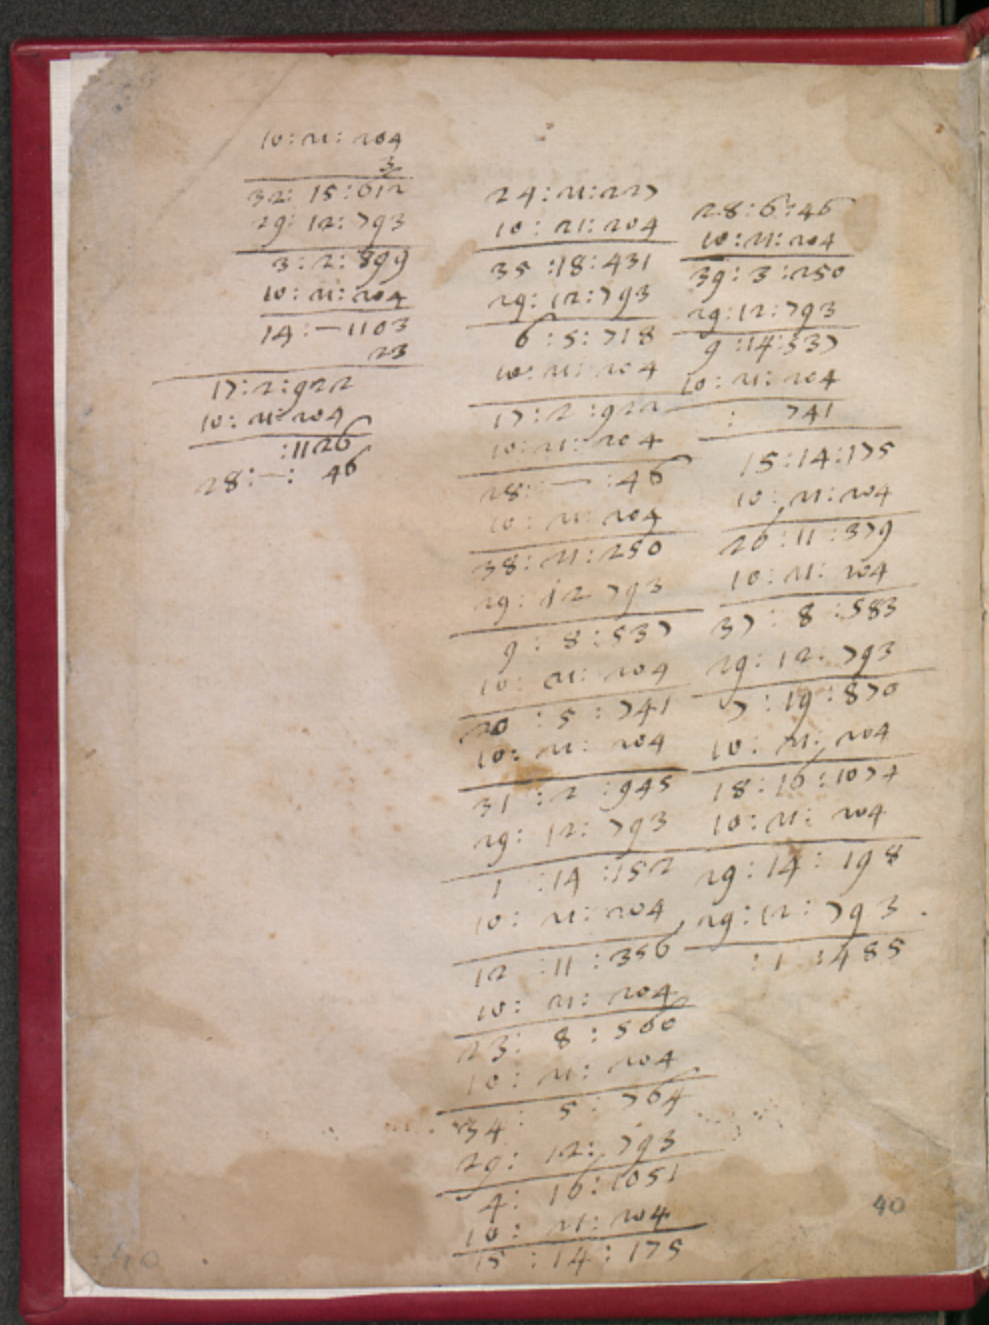 10:21:204
3
32:15:612
29:12:793
3:2:899
10:21:204
14:—1103
23
17:2:922
10:21:204
:1126
28:—:46
24:21:227
10:21:204
35:18:431
29:12:793
6:5:718
10:21:204
17:2:922
10:21:204
28:—:46
10:21:204
38:21:250
29:12 793
9:8:537
10:21:204
20:5:741
10:21:204
31:2:945
29:12:793
1:14:152
10:21:204
12:11:356
10:21:204
23:8:560
10:21:204
34:5:764
29:12:793
4:16:1051
10:21:204
15:14:175
28:6:46
10:21:204
39:3:250
29:12:793
9:14:537
10:21:204
: 741
15:14:175
10:21:204
26:11:379
10:21:204
37:8:583
29:12:793
7:19:870
10:21:204
18:16:1074
10:21:204
29:14:198
29:12:793
:1:485
40
40